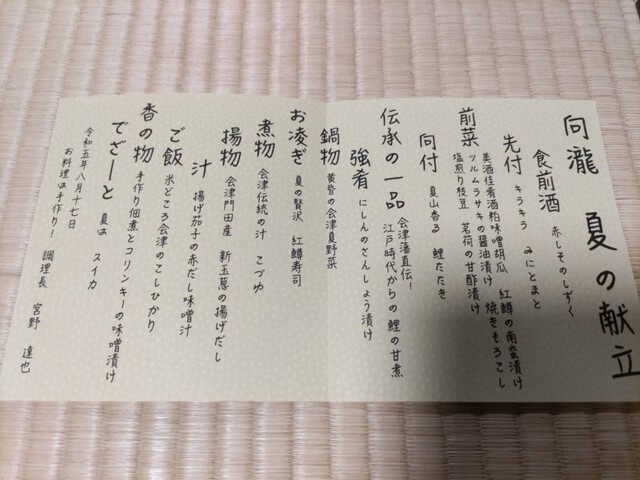 向瀧 夏の献立
食前酒 赤しそのしずく
先付 キラキラ みにとまと
前菜 美酒佳肴酒粕味噌胡瓜 紅鱒の南蛮漬け
ツルムラサキの醤油漬け 焼きもろこし
塩煎り枝豆 茗荷の甘酢漬け
向付 夏山香る 鯉たたき
伝承の一品 会津藩直伝!
江戸時代からの鯉の甘煮
強肴 にしんのさんしょう漬け
鍋物 黄昏の会津夏野菜
お凌ぎ 夏の贅沢 紅鱒寿司
煮物 会津伝統の汁 こづゆ
揚物 会津門田産 新玉葱の揚げだし
汁 揚げ茄子の赤だし味噌汁
ご飯 米どころ会津のこしひかり
香の物 手作り佃煮とコリンキーの味噌漬け
でざーと 夏は スイカ
令和五年八月十七日
お料理は手作り! 調理長 宮野 達也